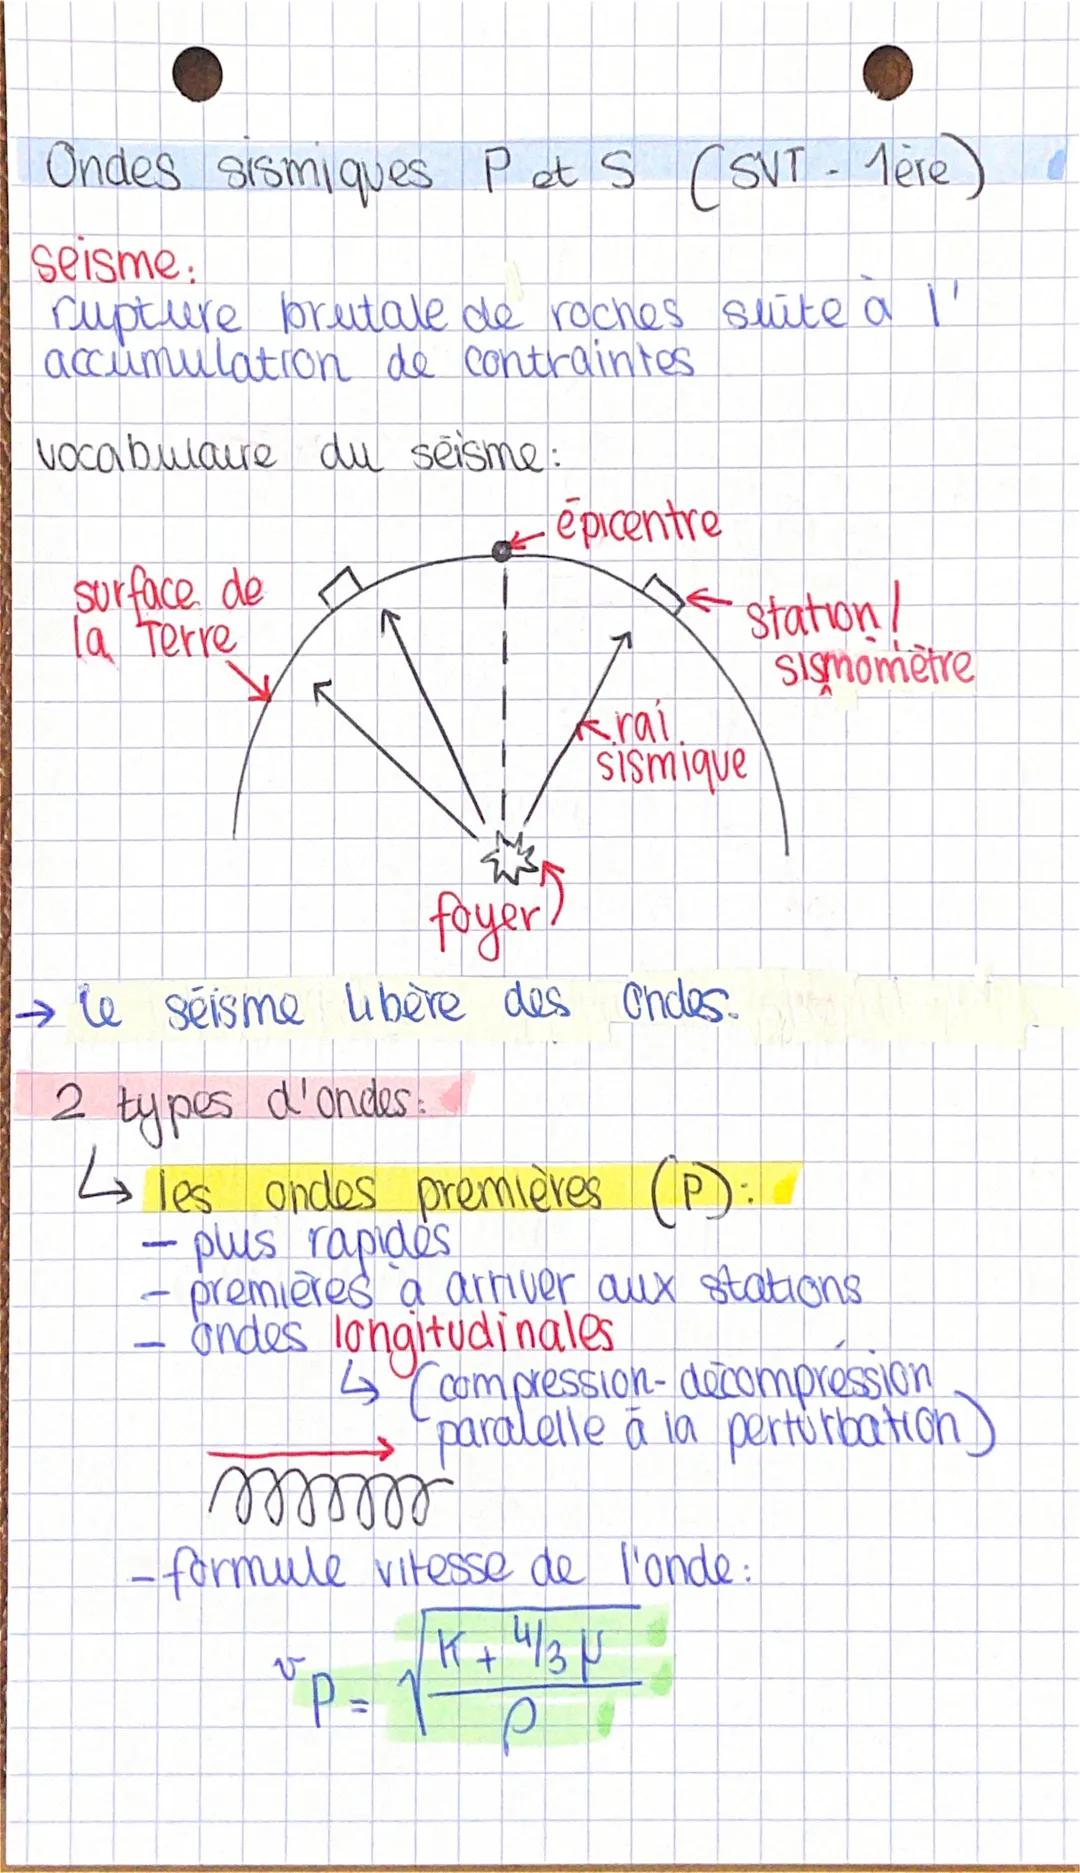 Ondes sismiques P et S (SVT - 1ère)
séisme:
rupture brutale de roches suite à l'
accumulation de contraintes
vocabulaire du séisme:
épicentre
surface de
la Terre
station /
sismomètre
rai
sismique
foyer
→ le séisme libère des ondes.
2 types d'ondes:
↳ les ondes premières (P):
- plus rapides
- premières à arriver aux stations
- ondes longitudinales
↳ (compression-décompréssion
paralelle à la perturbation)
- formule vitesse de l'onde:
vP = √((K + 4/3 μ) / ρ)